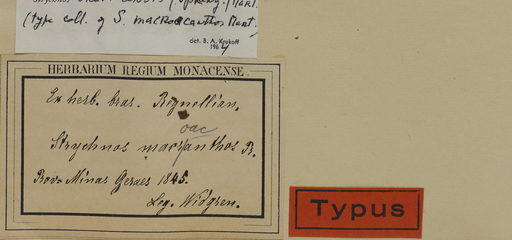 (type coll. of S. macroacanthos Mart.)
det. B. A. Krukoff
1964
HERBARIUM REGIUM MONACENSE.
Ex herb. bras. Regnellian.
oac
Strychnos macryanthos
Prov. Minas Geraes 1845.
Leg. Widgren.
Typus